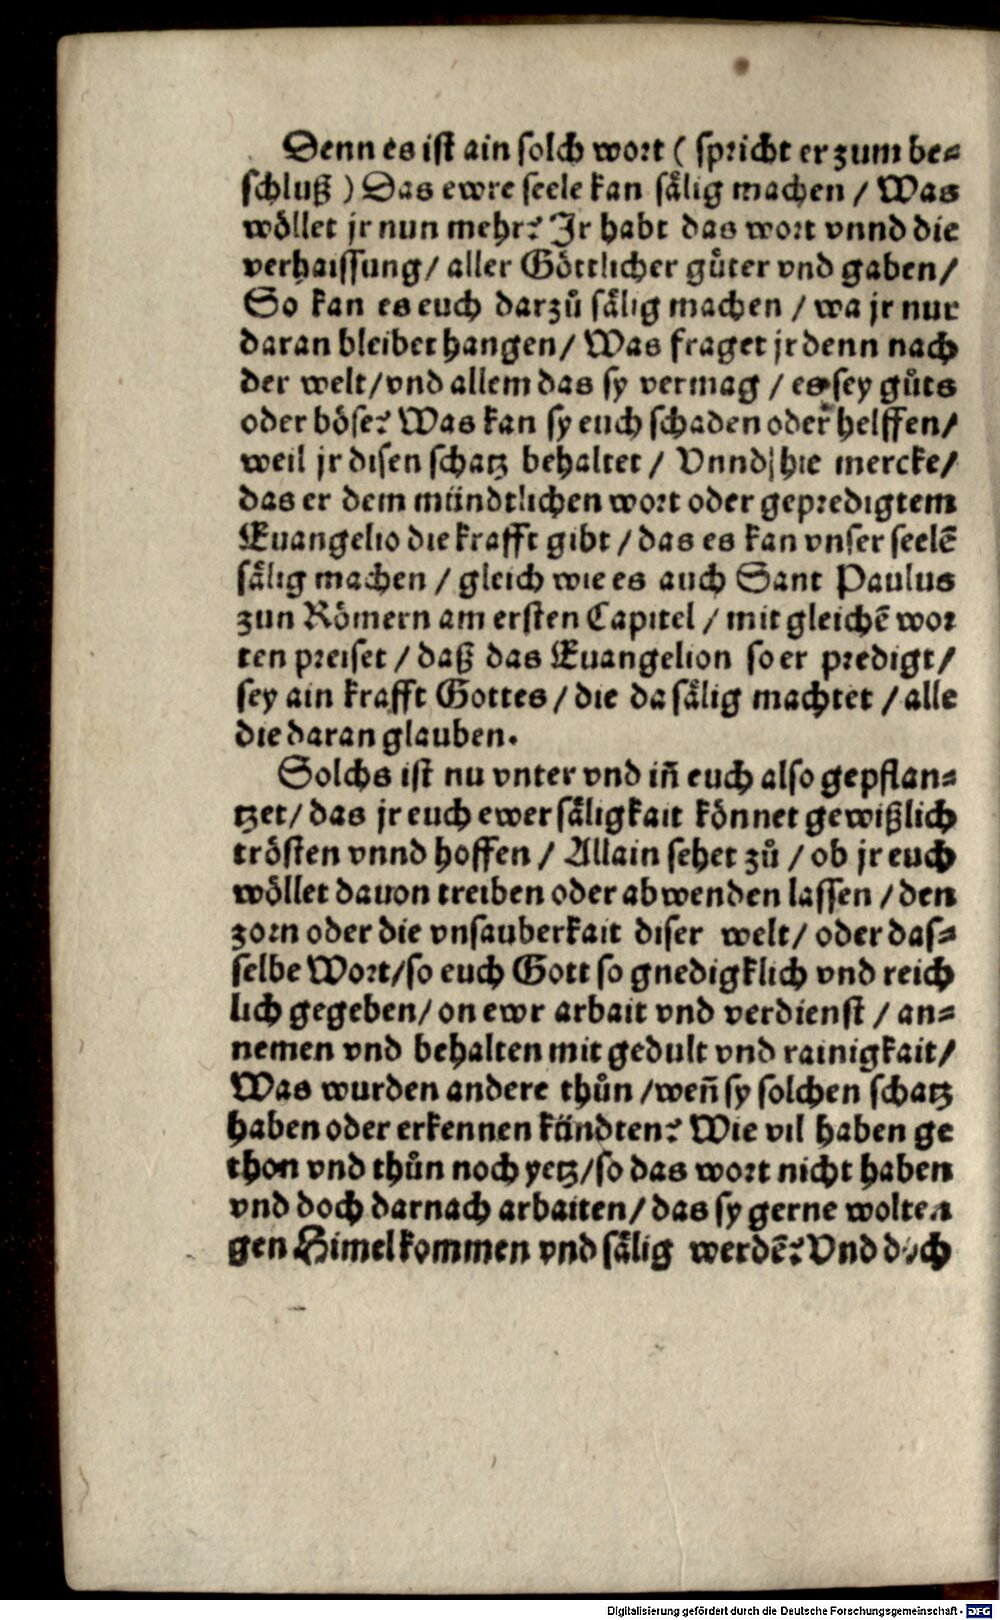 Denn es ist ain solch wort ( spricht er zum be=
schluß ) Das ewre seele kan sälig machen / Was
wöllet jr nun mehr? Jr habt das wort vnnd die
verhaissung / aller Göttlicher gůter vnd gaben /
So kan es euch darzů sälig machen / wa jr nur
daran bleibet hangen / Was fraget jr denn nach
der welt / vnd allem das sy vermag / es sey gůts
oder böse? Was kan sy euch schaden oder helffen /
weil jr disen schatz behaltet / Vnnd hie mercke /
das er dem mündtlichen wort oder gepredigtem
Euangelio die krafft gibt / das es kan vnser seelē
sälig machen / gleich wie es auch Sant Paulus
zun Römern am ersten Capitel / mit gleichē wor
ten preiset / daß das Euangelion so er predigt /
sey ain krafft Gottes / die da sälig machtet / alle
die daran glauben.
Solchs ist nu vnter vnd iñ euch also gepflan=
tzet / das jr euch ewer säligkait könnet gewißlich
trösten vnnd hoffen / Allain sehet zů / ob jr euch
wöllet dauon treiben oder abwenden lassen / den
zorn oder die vnsauberkait diser welt / oder das=
selbe Wort / so euch Gott so gnedigklich vnd reich
lich gegeben / on ewr arbait vnd verdienst / an=
nemen vnd behalten mit gedult vnd rainigkait /
Was wurden andere thůn / weñ sy solchen schatz
haben oder erkennen kündten? Wie vil haben ge
thon vnd thůn noch yetz / so das wort nicht haben
vnd doch darnach arbaiten / das sy gerne wolten
gen Himel kommen vnd sälig werdē? Vnd doch
Digitalisierung gefördert durch die Deutsche Forschungsgemeinschaft - DFG